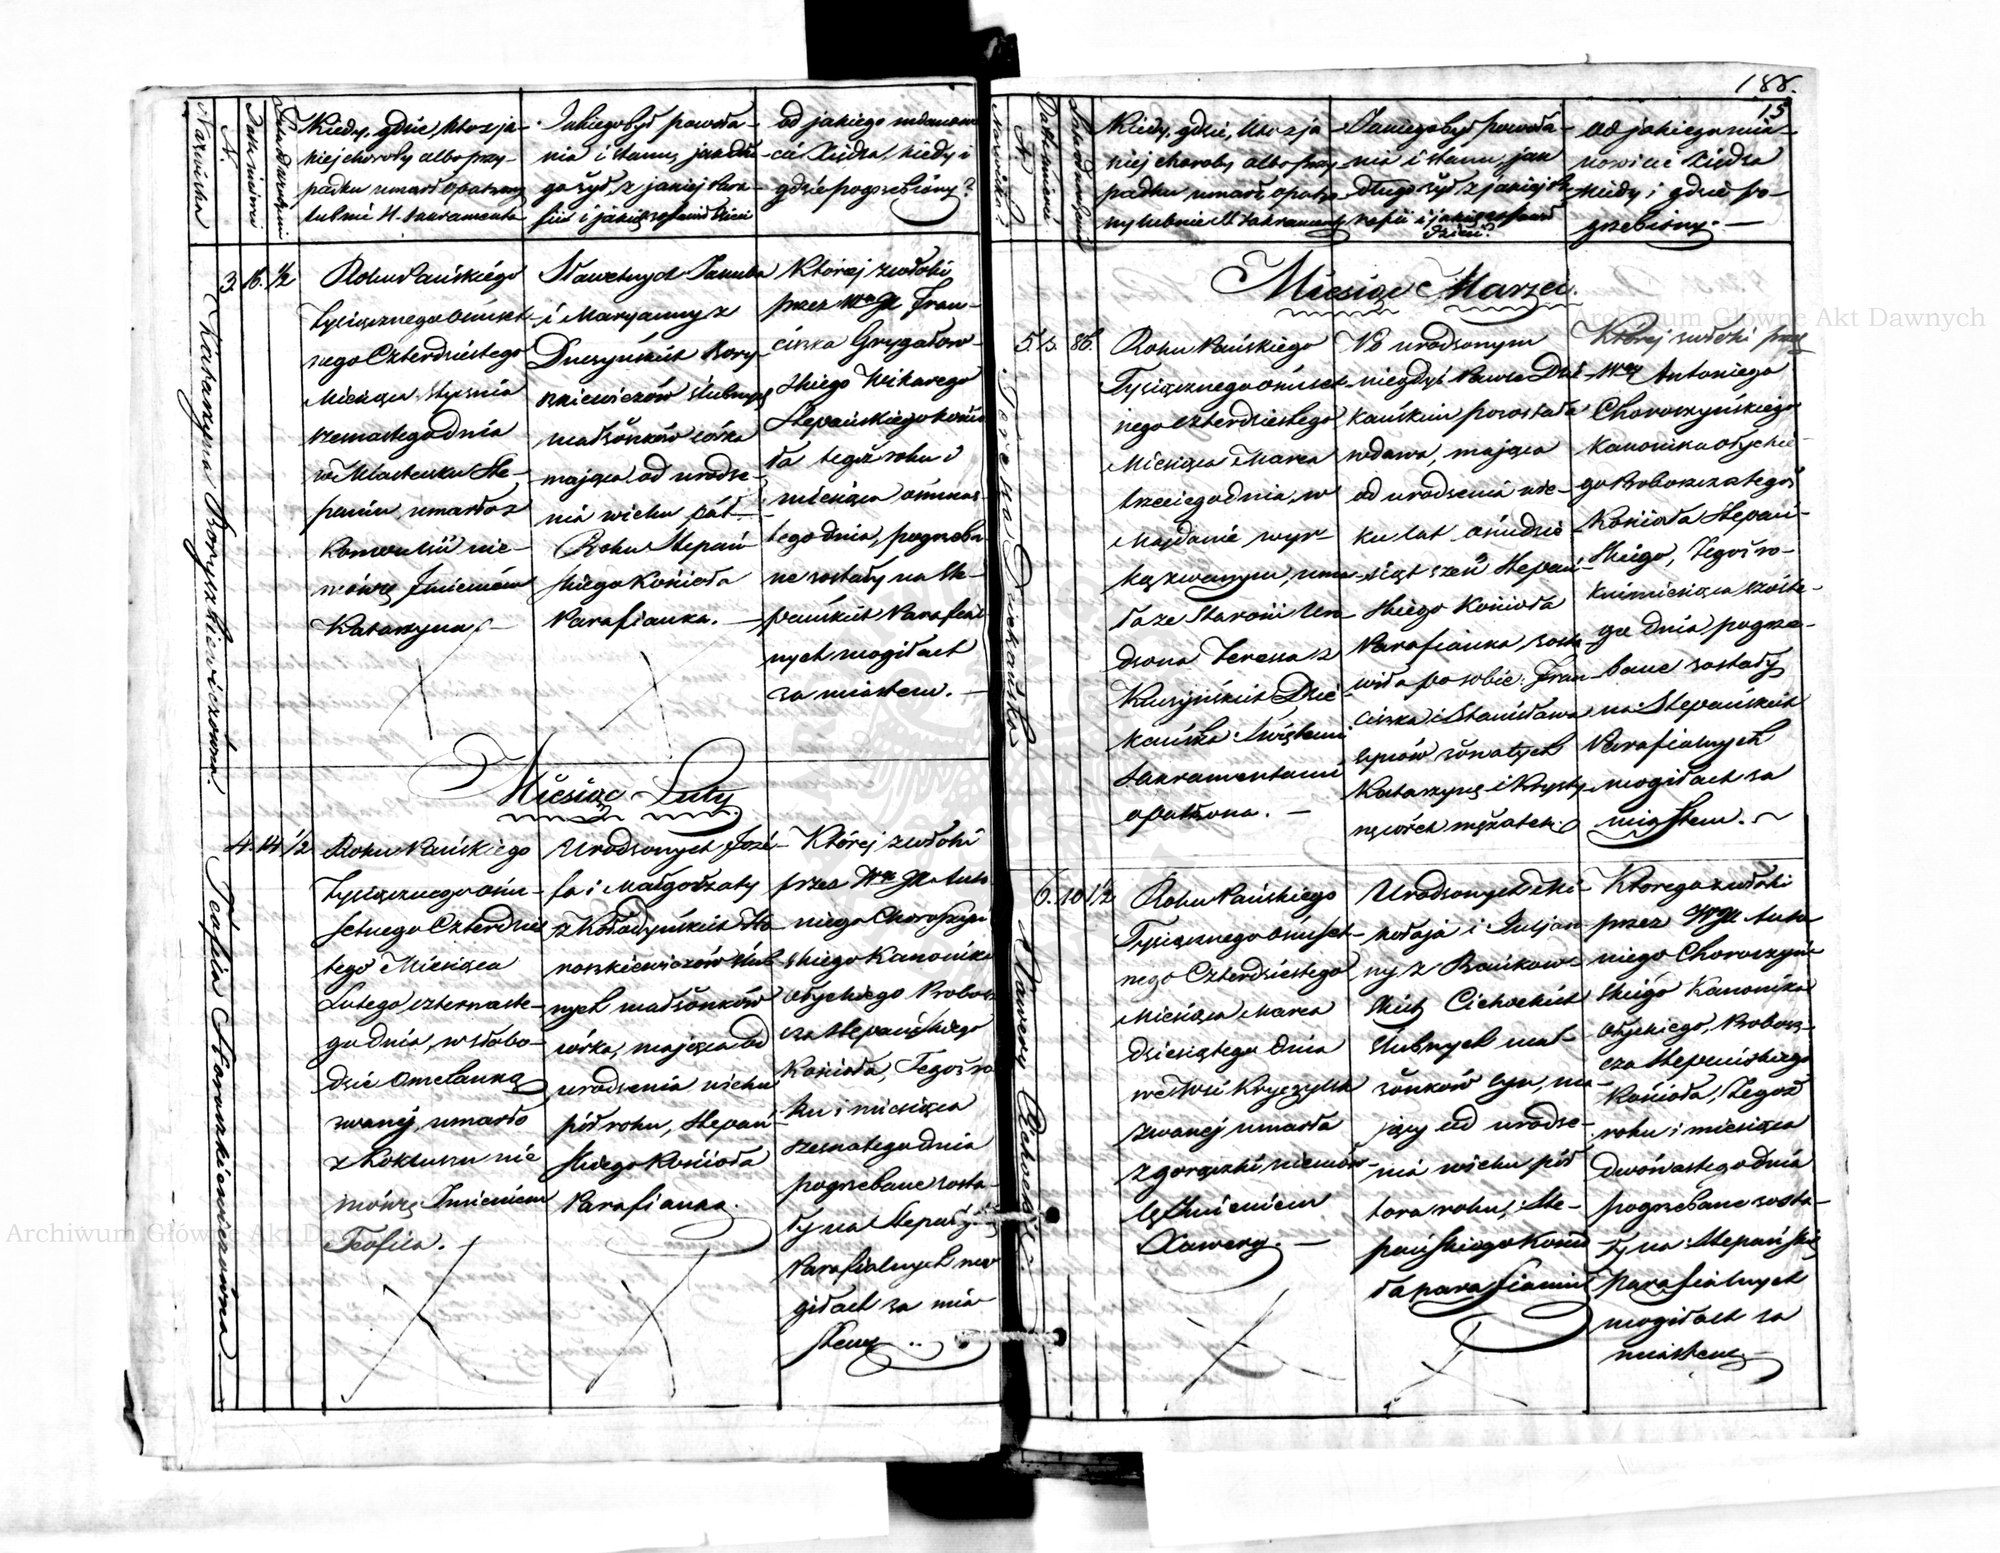 188.
15
Nazwiska
N.
Data śmierci
Kiedy, gdzie, kto z ja-
kiej choroby albo przy-
padku umarł opatrzony
lub nié S. Sakramenta
Jakiego był powoła-
nia i stanu, jak dłu-
go żył, z jakiej Para-
fii i jakie zostawił dzieci
od jakiego mianowi-
cié Xiędza, kiedy i
gdzie pogrzebiony?
3. 16. ½
Katarzyna Boryszkiewiczówna.
Roku Pańskiégo
tysiącznego ośmset-
nego Czterdziéstego
Miesiąca Stycznia
szesnastego dnia
w Miasteczku Ste-
paniu, umarła z
Konwulsii nie-
mówlę Jmieniem
Katarzyna. —
Sławetnych Jakuba
i Maryanny z
bory-
szkiewiczów ślubnych
małżonków córka
mająca od urodze-
nia wieku pół-
Roku Stepań-
skiego Kościoła
Parafianka. —
Którey zwłoki
przez WJX Fran-
ciszka
skiego Wikarego
Stepańskiego Kościo-
ła tegoż roku i
miesiąca óśmnas-
tego dnia, pogrzeba-
ne zostały na Ste-
pańskich Parafial-
nych mogiłach
za miastem. —
Miesiąc Luty
4. 14 ½
Teofila Horoszkiewiczówna
Roku Pańskiego
tysiącznego ośm-
setnego Czterdzies-
tego Miesiąca
Lutego czternaste-
go dnia, w słobo-
dzie Omelanką
zwanej, umarła
z Kokluszu nie
mówlę Imieniem
Teofila. —
Urodzonych Józé-
fa i Małgorzaty
z Kołodyńskich Ho-
roszkiewiczów ślub-
nych małżonków
córka, mająca od
urodzenia wieku
pół roku, Stepań-
skiego Kościoła
Parafianka.
Którey zwłoki
przez WJX Anto-
niego Choroszyń-
skiego Kanonika
Ołyckiego Probosz-
cza Stepańskiego
Kościoła, Tegoż ro-
ku i miesiąca
szesnatego dnia
pogrzebane zosta-
ły na Stepańs.
Parafialnych mo-
giłach za mia-
stem. ..
Nazwiska?
N.
Data śmierci
Kiedy, gdzie, kto z ja-
kiej choroby albo przy
padku umarł, opatrzo-
ny lub nie SS. Sakramenty
Jakiego był powoła-
nia i stanu, jak
długo żył z jakiej Pa-
rafii i jakie zostawił
dzieci?
od jakiego mia-
nowicié Xiędza
kiedy i gdzie po-
grzebiony. —
Miesiąc Marzec.
5. 3. 86.
Teressa Dziekańska
Roku Pańskiego
Tysiącznego ośmset-
nego czterdziestego
Miesiąca Marca
trzeciego dnia, w
Majdanie wyr-
ką zwanym, uma-
ła ze Starości Uro-
dzona Teressa z
Dzie-
kańska Świętemi
Sakramentami
opatrzona. —
Z urodzonym
niegdyś Pawłem Dzie-
kańskim pozostała
wdowa, mająca
od urodzenia wie-
ku lat ośmdzie-
siąt sześć Stepań-
skiego Kościoła
Parafianka, zosta-
wiła po sobie: Fran-
ciszka i Stanisława
synów żonatych
Katarzynę i Krysty-
nę córek mężatek.
Której zwłoki przez
WJX Antoniego
Choroszyńskiego
Kanonika Ołyckie-
go Proboszcza tegoż
Kościoła Stepań-
skiego, Tegoż ro-
ku i miesiąca szóste-
go dnia pogrze-
bane zostały
na Stepańskich
Parafialnych
mogiłach za
miastem. ~
6. 10 ½
Xawery Cichocki
Roku Pańskiego
Tysiącznego ośmset-
nego Czterdziestego
Miesiąca Marca
dziesiątego dnia
we Wsi Kryczylsk
zwanej umarła
z gorączki niemów-
lę Jmieniem
Xawery. —
Urodzonych Mi-
kołaja i Juljan-
ny z Bańkow-
skich Cichockich
ślubnych mał-
żonków syn, ma-
jący od urodze-
nia wieku pół
tora roku, Ste-
pańskiego Kościo-
ła parafianin
Którego zwłoki
przez WJX Anto-
niego Choroszyń-
skiego Kanonika
Ołyckiego, Probosz-
cza Stepańskiego
Kościoła, Tegoż
roku i miesiąca
dwónastego dnia
pogrzebane zosta-
ły na Stepański
Parafialnych
mogiłach za
miastem —
Archiwum Główne Akt Dawnych
Archiwum Główne Akt Dawnych